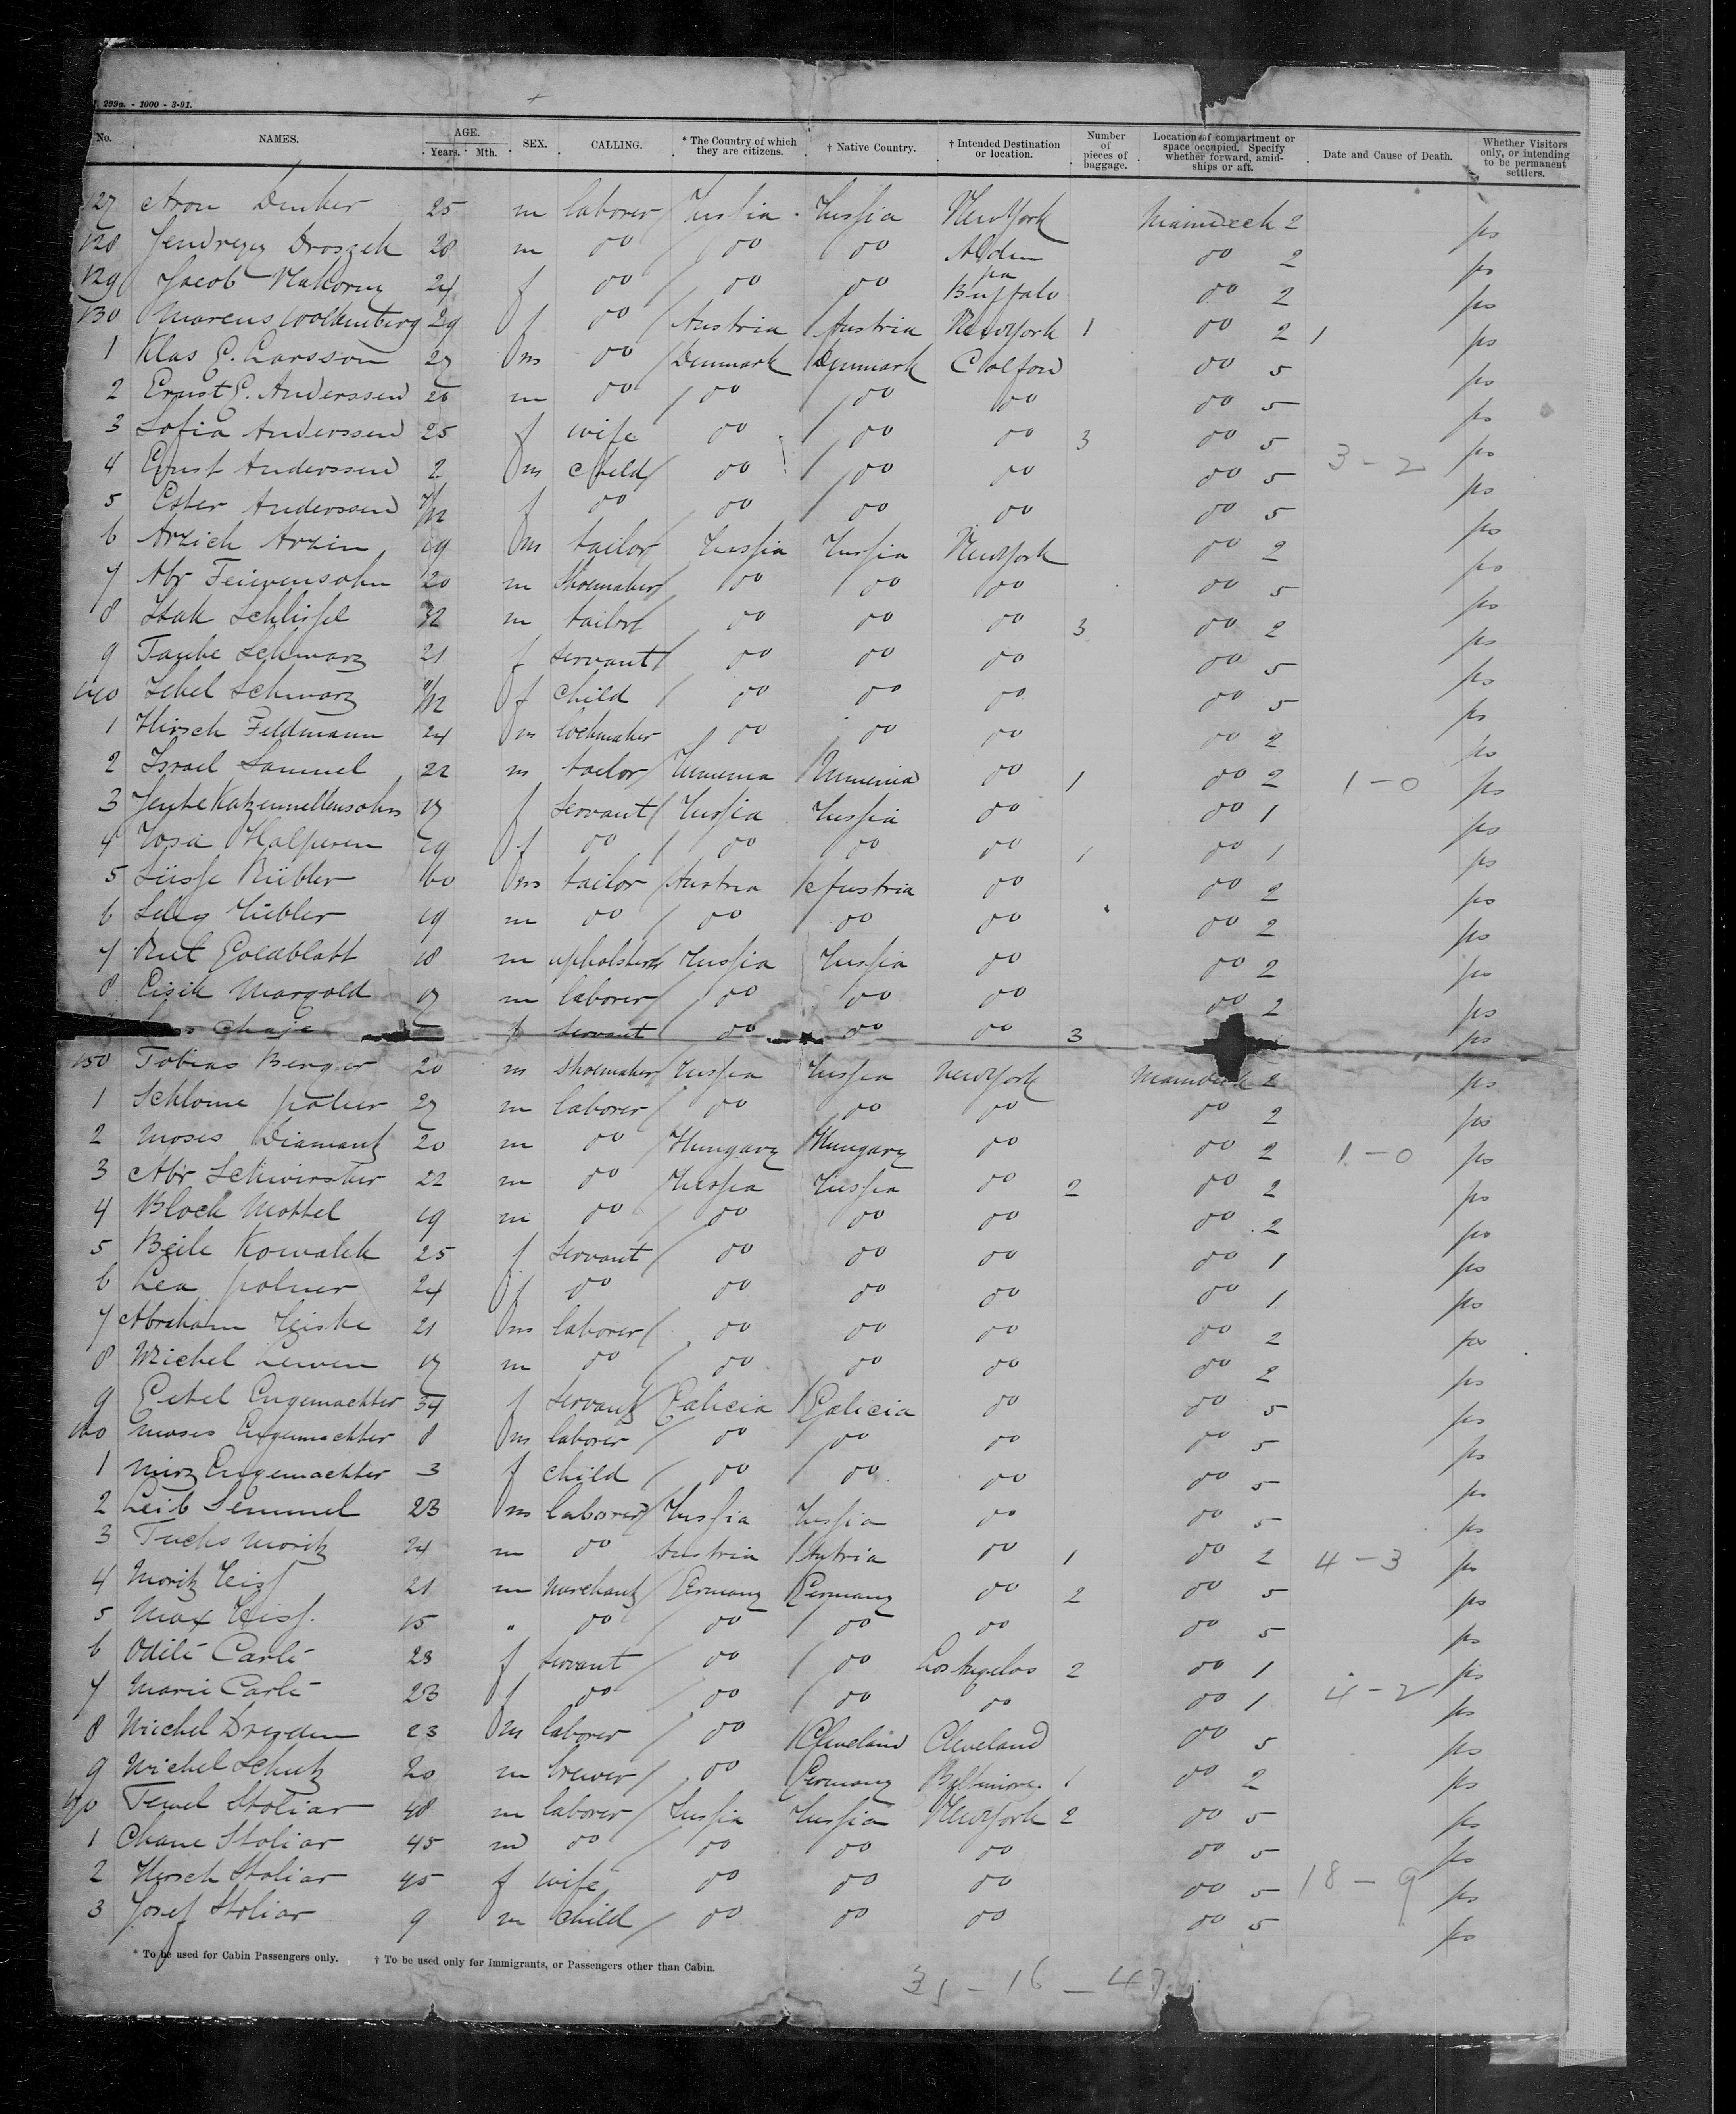 299a. - 1000 - 3-91.
No. NAMES. AGE. Years. Mth. SEX. CALLING. * The Country of which they are citizens. † Native Country. † Intended Destination or location. Number of pieces of baggage. Location of compartment or space occupied. Specify whether forward, amidships or aft. Date and Cause of Death. Whether Visitors only, or intending to be permanent settlers.
127 Aron Denker 25 m laborer Russia Russia New York Maindeck 2 ps
128 Jendrzey Droszek 28 m do do do Alden pa do 2 ps
129 Jacob Nakorny 24 f do do do Buffalo do 2 ps
130 Marcus Woldenberg 29 f do Austria Austria New York 1 do 2 1 ps
1 Klas E. Larsson 27 m do Denmark Denmark do 5 ps
2 Ernst E. Anderssen 26 m do do do do do 5 ps
3 Sofia Anderssen 25 f wife do do do 3 do 5 ps
4 Ernst Anderssen 2 m child do do do do 5 3 - 2 ps
5 Ester Anderssen f do do do do do 5 ps
6 Arzich Arzin 19 m tailor Russia Russia New York do 2 ps
7 Abr 20 m Shoemaker do do do do 5 ps
8 32 m tailor do do do 3 do 2 ps
9 Taube Schwarz 21 f servant do do do do 5 ps
140 Schwarz f child do do do do 5 ps
1 Hirsch Feldmann 24 m do do do do 2 ps
2 Israel Samuel 22 m tailor Rumenia Rumenia do 1 do 2 1 - 0 ps
3 Jente 17 f servant Russia Russia do do 1 ps
4 Rosa Halperen 19 f do do do do 1 do 1 ps
5 Süsse Rübler 60 m tailor Austria Austria do do 2 ps
6 Rübler 19 m do do do do do 2 ps
7 Goldblatt 18 m upholsterer Russia Russia do do 2 ps
8 Eisik Margold 17 m laborer do do do do 2 ps
Chaje f servant do do do 3 ps
150 Tobias Berger 20 m shoemaker Russia Russia New York Maindeck 2 ps
1 Schlome polner 27 m laborer do do do do 2 ps
2 Moses Diamant 20 m do Hungary Hungary do do 2 1 - 0 ps
3 Abr Schwirster 22 m do Russia Russia do 2 do 2 ps
4 Bloch Mottel 19 m do do do do do 2 ps
5 Beile Kowalek 25 f servant do do do do 1 ps
6 Lea polner 24 f do do do do do 1 ps
7 Abraham Reiske 21 m laborer do do do do 2 ps
8 Michel Lewen 17 m do do do do do 2 ps
9 Eitel Engemachter 34 f servant Galicia Galicia do do 5 ps
160 Moses Engemachter 8 m laborer do do do do 5 ps
1 Engemachter 3 f child do do do do 5 ps
2 Leib Semmel 23 m laborer Russia Russia do do 5 ps
3 Fuchs Moritz 24 m do Austria Autria do 1 do 2 4 - 3 ps
4 Moritz Reiss 21 m Merchant Germany Germany do 2 do 5 ps
5 Max Reiss. 15 " do do do do do 5 ps
6 Odile Carle 23 f servant do do Los Angelos 2 do 1 ps
7 Marie Carle 23 f do do do do do 1 4 - 2 ps
8 Michel Dreyden 23 m laborer do Cleveland Cleveland do 5 ps
9 Michel Schutz 20 m brewer do Germany Baltimore 1 do 2 ps
170 Tewel Stoliar 48 m laborer Russia Russia New York 2 do 5 ps
1 Chane Stoliar 45 m do do do do do 5 ps
2 Hersch Stoliar 45 f wife do do do do 5 18 - 9 ps
3 Josef Stoliar 9 m child do do do do 5 ps
* To be used for Cabin Passengers only. † To be used only for Immigrants, or Passengers other than Cabin.
31 - 16 - 47